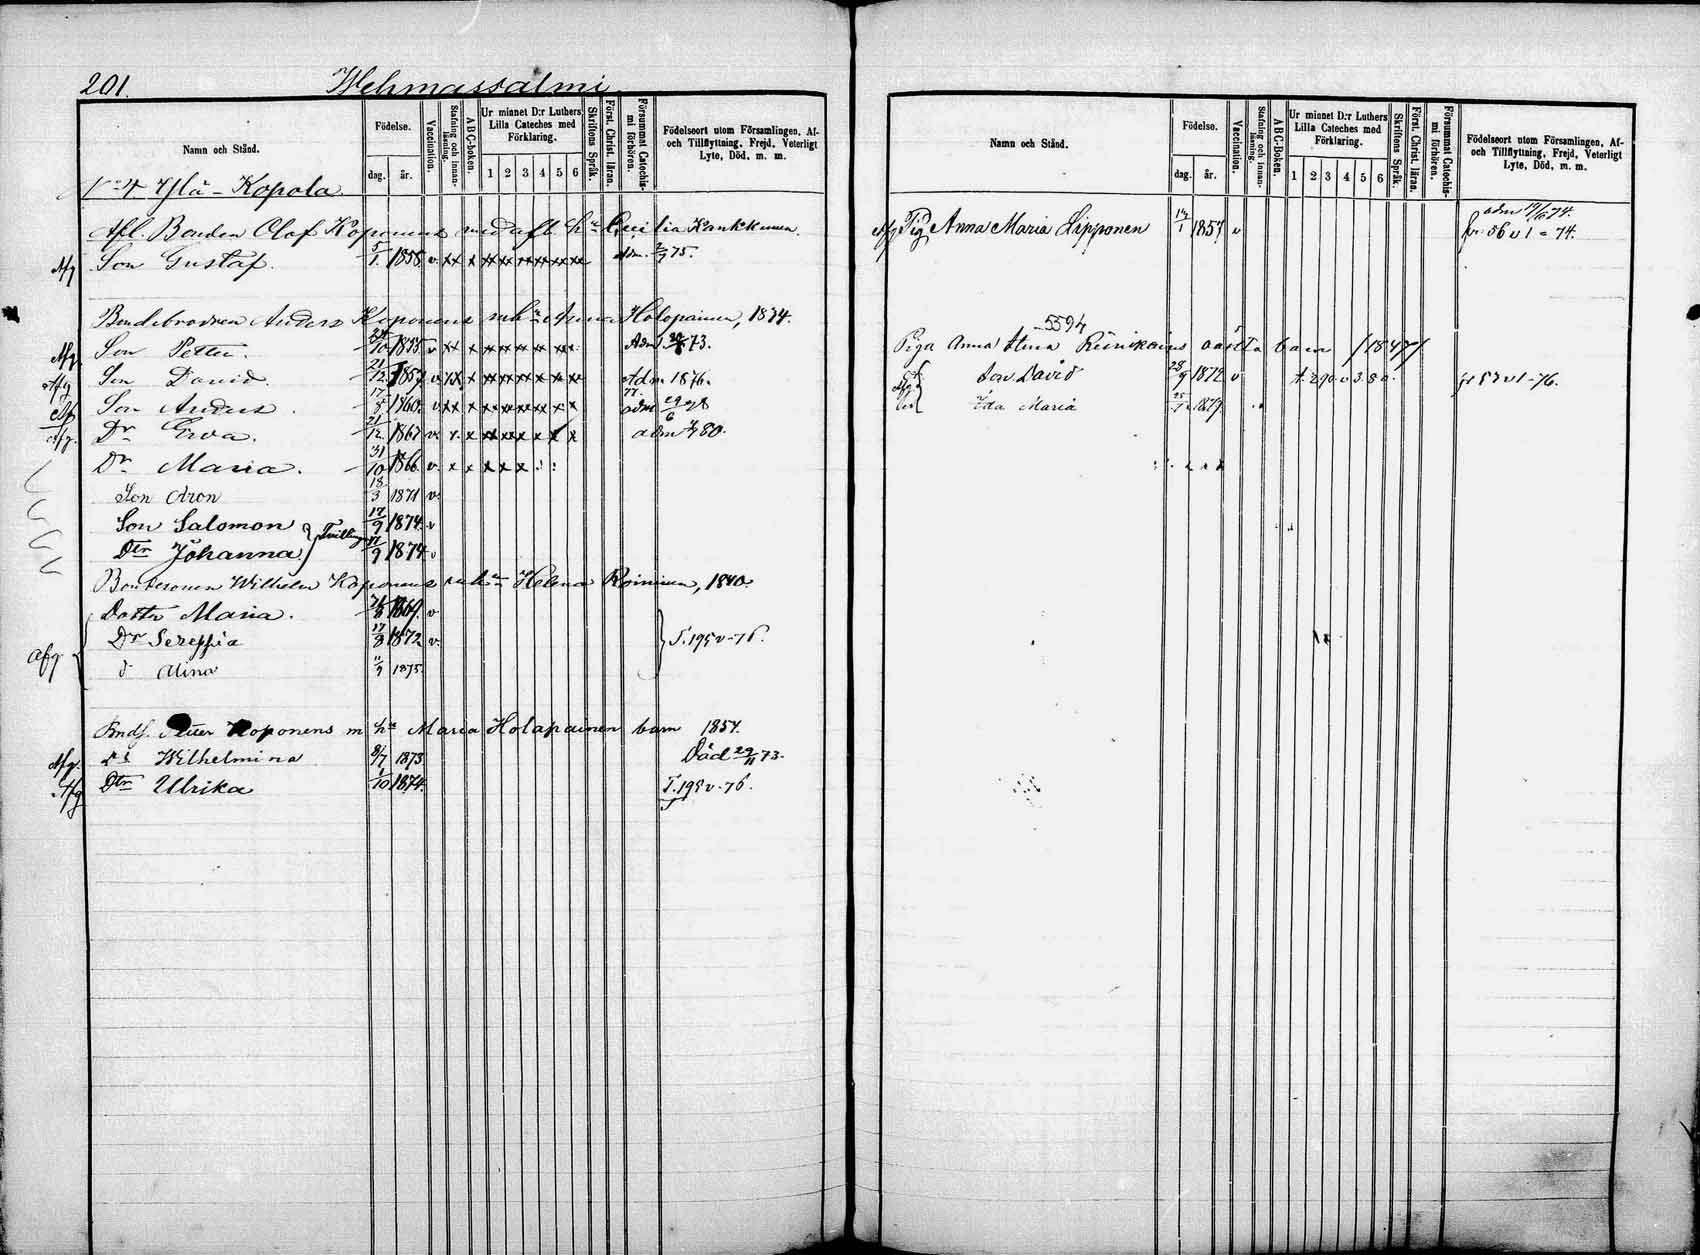 201.
Wehmassalmi
Namn och Stånd.
Födelse.
dag. år.
Vaccination.
Stafning och innanläsning.
ABC-boken.
Ur minnet D:r Luthers Lilla Cateches med Förklaring.
1 2 3 4 5 6
Skriftens Språk.
Först. Christ. läran.
Försummat Catechismi förhören.
Födelseort utom Församlingen, Af- och Tillflyttning, Frejd, Veterligt Lyte, Död, m. m.
Ylä-Kopola
Afl. Bonden Olof Koponens med afl. h:u Cecilia Kankkunen.
Afg Son Gustaf. 5/1 1858 v. xx x xx xx xx xx xx xx Adm. 75.
Bondebrodren Anders Koponens m h:u Anna Holopainen, 1834.
Afg Son Petter. 24/10 1855 v xx x Adm 73.
Afg Son David. 21/12 1857 v xx x Adm 1876.
Af Son Anders. 17/8 1860 v xx x adm 29/6 78
Afg. Dr Eva. 21/12 1867 v. x. x adm 80.
Dr Maria. 31/10 1866 v. x x x x x
Son Aron 18/3 1871 v.
Son Salomon 17/9 1874 v
Dtr Johanna } Tvillingar 17/9 1874 v
Bondesonen Wilhelm Koponens m h:u Helena Roininen, 1840.
Dottr Maria. 1869. v
Afg Dr Sereffia 17/8 1872 v. } T. 195 v-76.
d Alina 11/9 1875.
Bnds. Petter Koponens m h:u Maria Holapainen barn 1854.
Afg. D:r Wilhelmina 8/7 1873 Död 29/11 73.
Afg Dtr Ulrika 1/10 1874. T. 195 v-76.
Namn och Stånd.
Födelse.
dag. år.
Vaccination.
Stafning och innanläsning.
ABC-Boken.
Ur minnet D:r Luthers Lilla Cateches med Förklaring.
1 2 3 4 5 6
Skriftens Språk.
Först. Christ. läran.
Försummat Catechismi förhören.
Födelseort utom Församlingen, Af- och Tillflyttning, Frejd, Veterligt Lyte, Död, m. m.
adm 19/6 74.
Afg Pig Anna Maria Lipponen 14/1 1857 v fr. 56 v 1 - 74.
5594
Piga Anna Stina Reinikains oäkta barn /1847/
Son David 28/9 1872 v t. 290 v 3. 80. fr 53 v 1-76.
Ida Maria 1879.